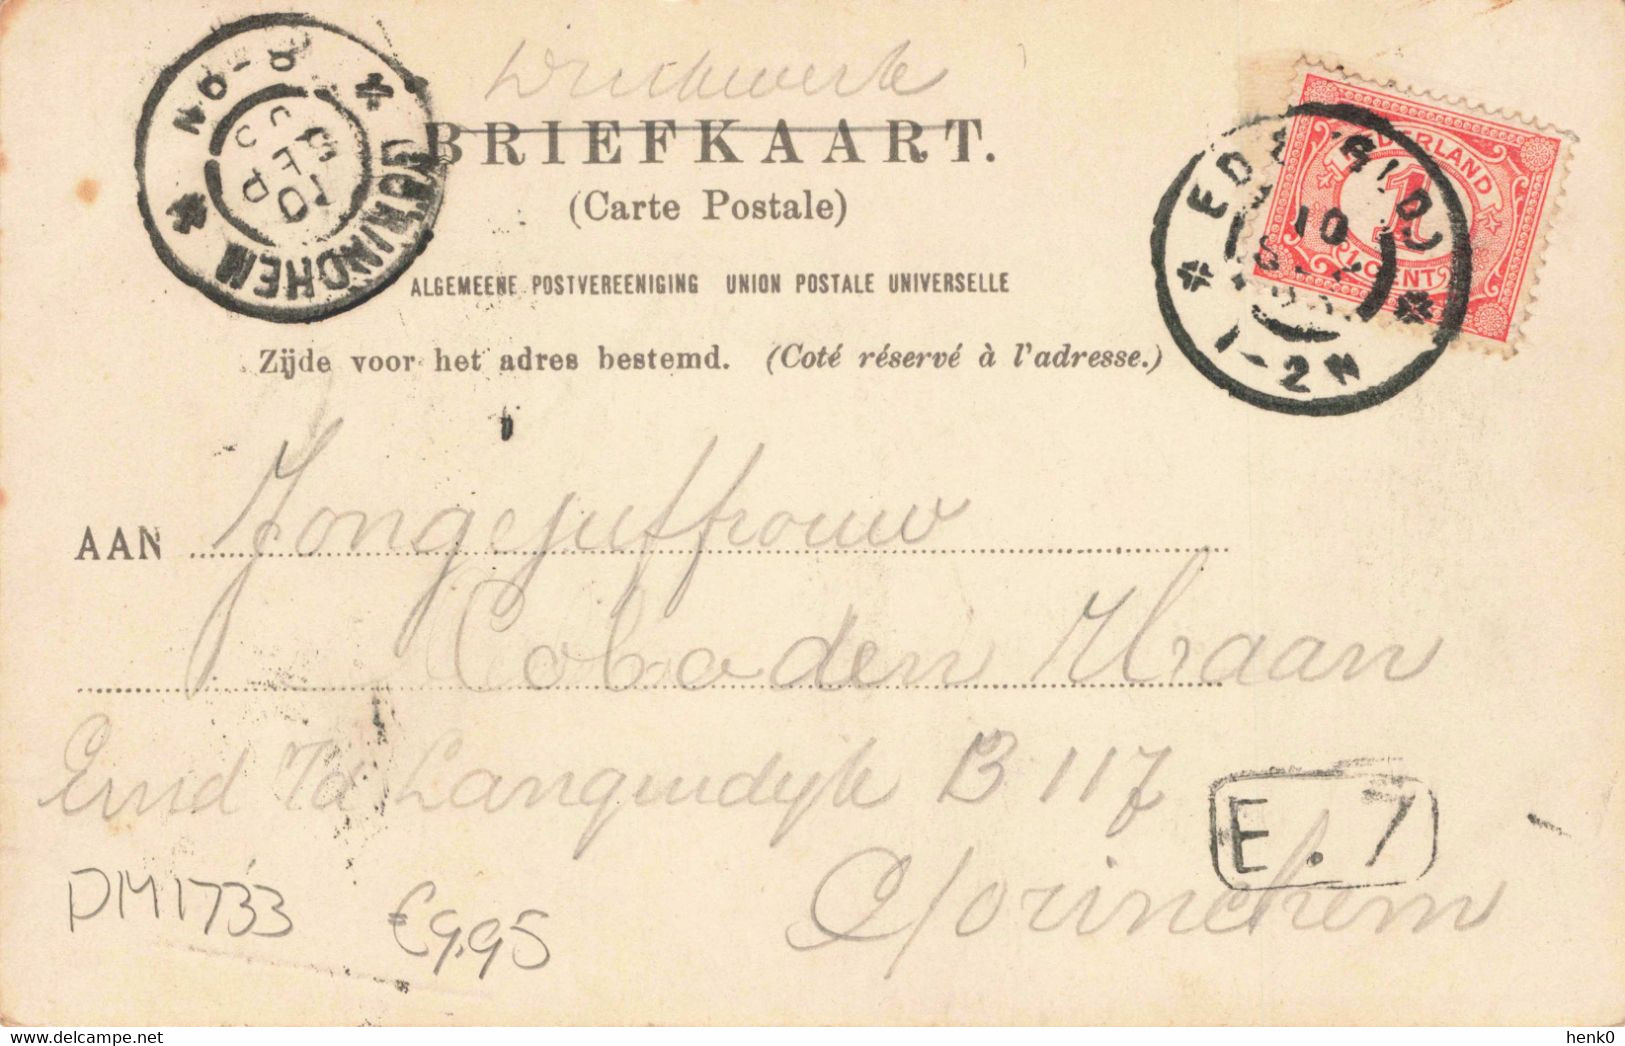 Drukwerk
BRIEFKAART.
(Carte Postale)
ALGEMEENE POSTVEREENIGING UNION POSTALE UNIVERSELLE
Zijde voor het adres bestemd. (Coté réservé à l'adresse.)
NEDERLAND
1
1 CENT
10
1-2N
8-9N
10 SEP
GORINCHEM
AAN Jongejuffrouw
Coba den Haan
Eind v/d Langendijk B 117
Gorinchem
E.7
DM1733
€9,95
henk0